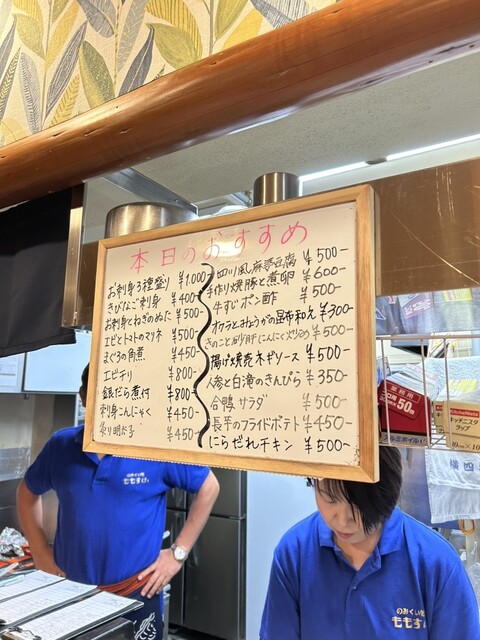 本日のおすすめ
お刺身3種盛り ¥1,000-
きびなご刺身 ¥400-
お刺身とねぎのぬた ¥500-
エビとトマトのマリネ ¥500-
まぐろの角煮 ¥450-
エビチリ ¥800-
銀だら煮付 ¥800-
刺身こんにゃく ¥450-
炙り明太子 ¥450-
四川風麻婆豆腐 ¥500-
手作り焼豚と煮卵 ¥600-
牛すじポン酢 ¥500-
オクラとみょうがの昆布和え ¥300-
きのこと砂肝にんにく炒め ¥500-
揚げ焼売ネギソース ¥500-
人参と白滝のきんぴら ¥350-
合鴨サラダ ¥500-
長芋のフライドポテト ¥450-
にらだれチキン ¥500-
業務用
50m
KitchenWrap
キッチンスタ
ラップ
ももすけ
ももすけ